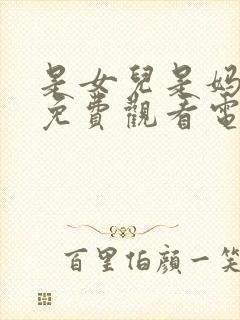 是女兒是媽
免費觀看電
百里伯顏一笑